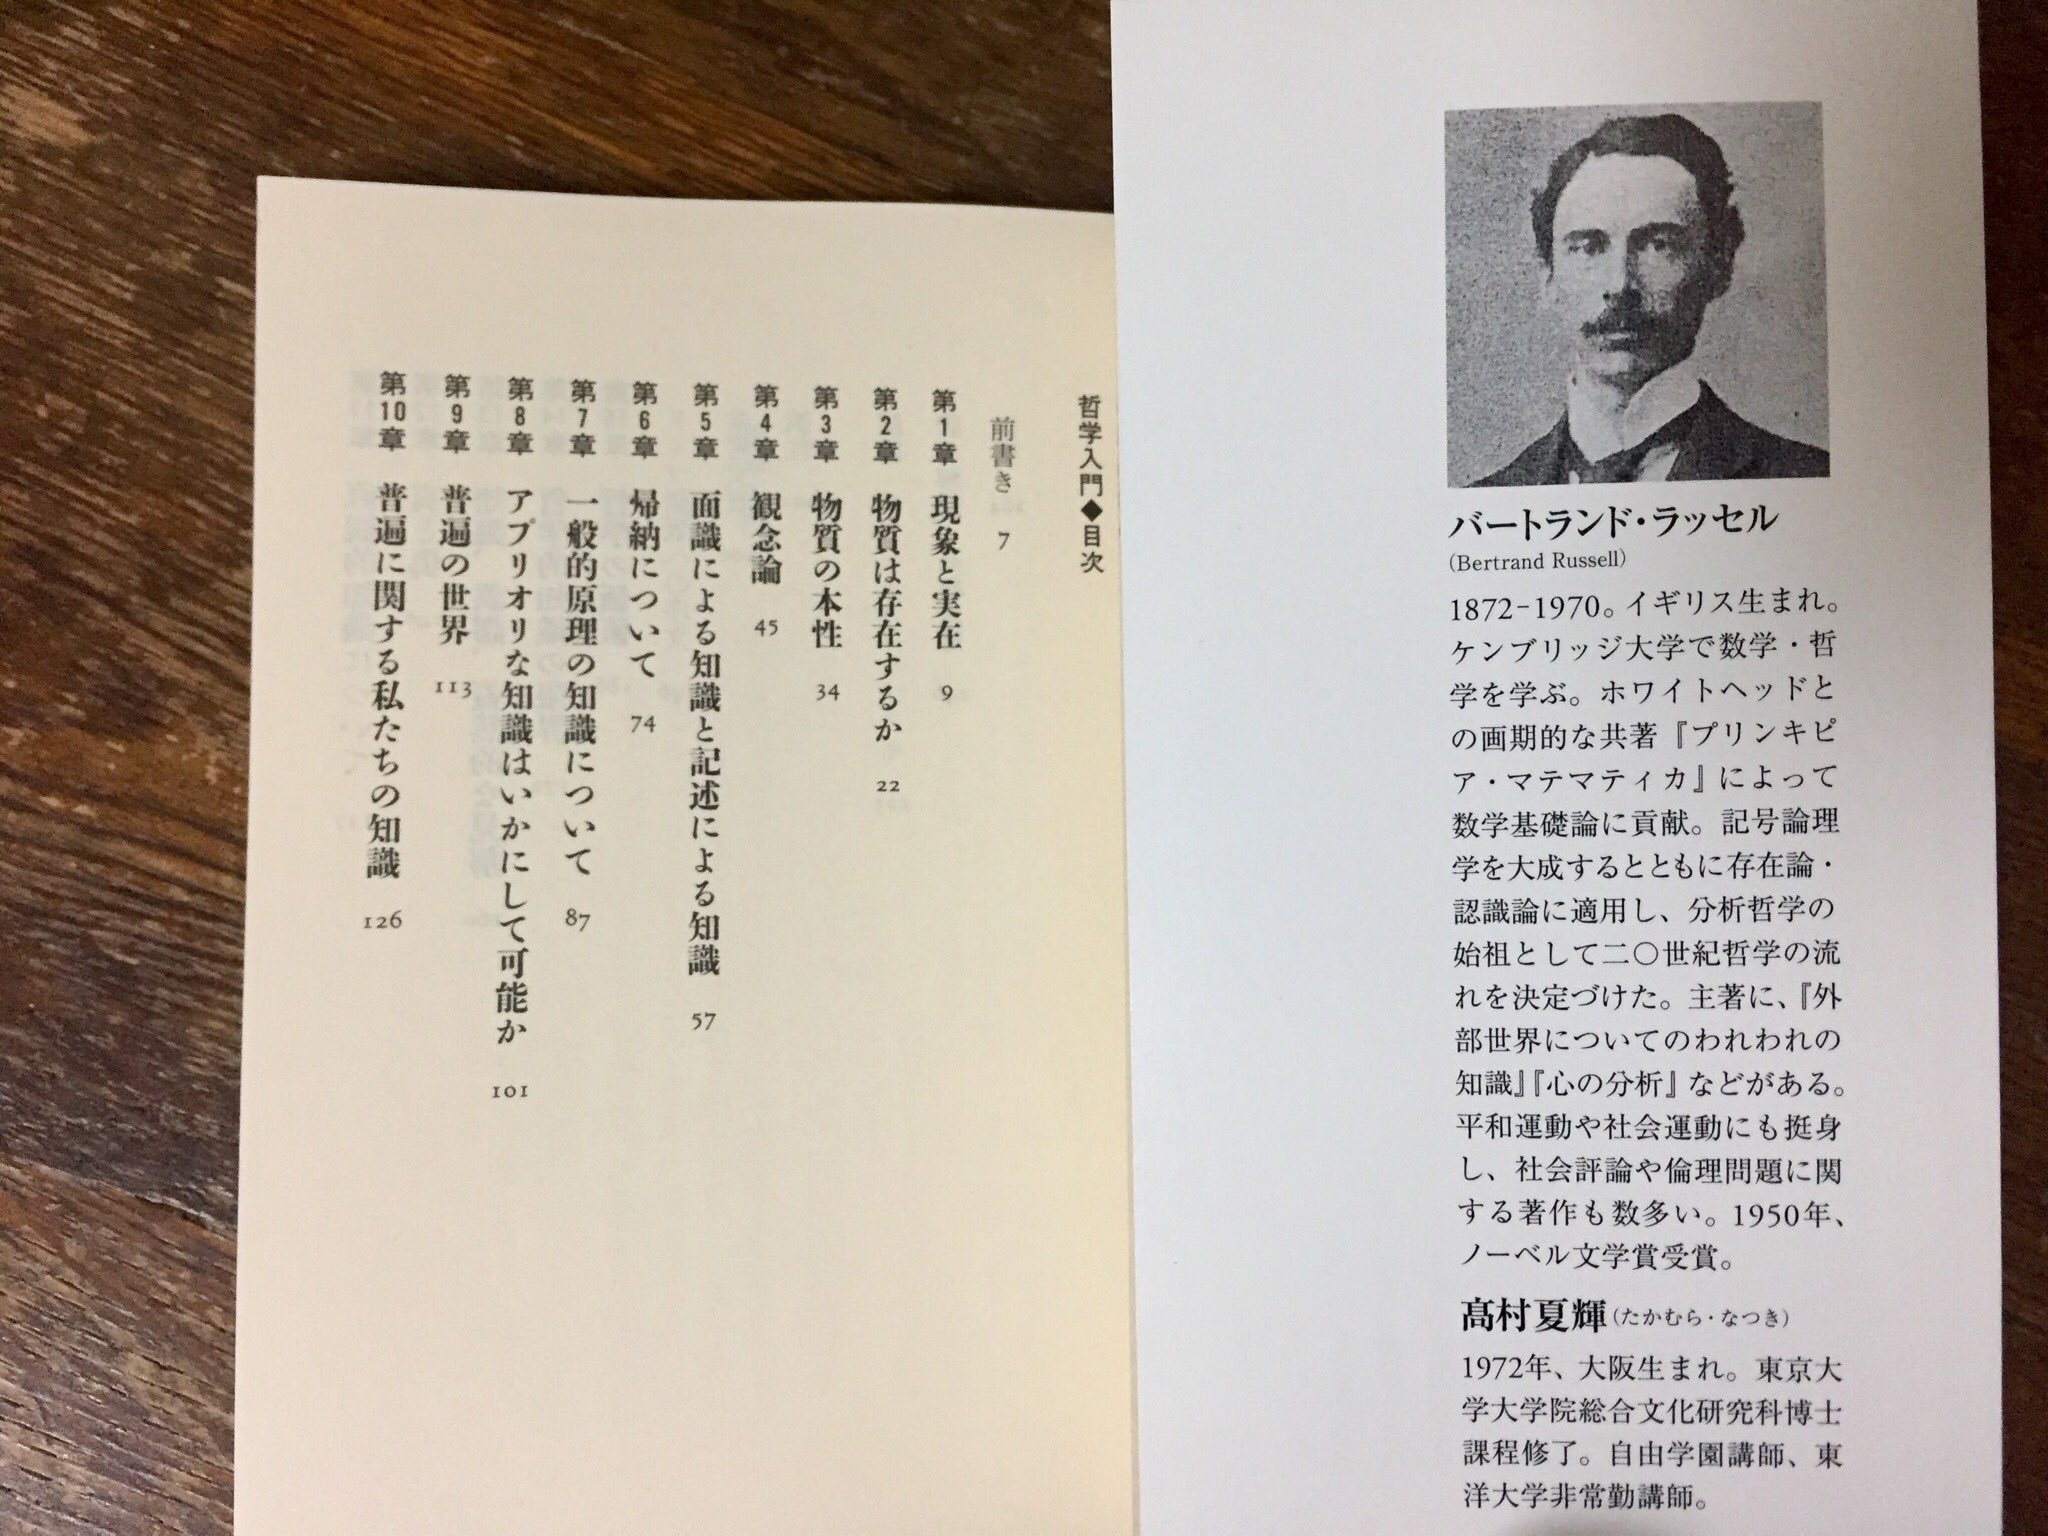 バートランド・ラッセル
(Bertrand Russell)
1872-1970。イギリス生まれ。
ケンブリッジ大学で数学・哲
学を学ぶ。ホワイトヘッドと
の画期的な共著『プリンキピ
ア・マテマティカ』によって
数学基礎論に貢献。記号論理
学を大成するとともに存在論・
認識論に適用し、分析哲学の
始祖として二〇世紀哲学の流
れを決定づけた。主著に、『外
部世界についてのわれわれの
知識』『心の分析』などがある。
平和運動や社会運動にも挺身
し、社会評論や倫理問題に関
する著作も数多い。1950年、
ノーベル文学賞受賞。
髙村夏輝(たかむら・なつき)
1972年、大阪生まれ。東京大
学大学院総合文化研究科博士
課程修了。自由学園講師、東
洋大学非常勤講師。
哲学入門◆目次
前書き 7
第1章 現象と実在 9
第2章 物質は存在するか 22
第3章 物質の本性 34
第4章 観念論 45
第5章 面識による知識と記述による知識 57
第6章 帰納について 74
第7章 一般的原理の知識について 87
第8章 アプリオリな知識はいかにして可能か 101
第9章 普遍の世界 113
第10章 普遍に関する私たちの知識 126